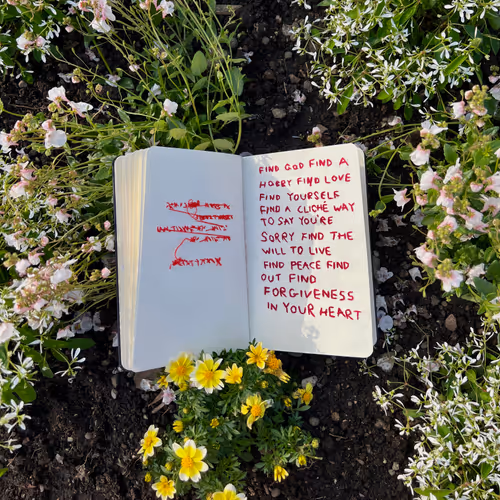 FIND GOD FIND A
HOBBY FIND LOVE
FIND YOURSELF
FIND A CLICHÉ WAY
TO SAY YOU'RE
SORRY FIND THE
WILL TO LIVE
FIND PEACE FIND
OUT FIND
FORGIVENESS
IN YOUR HEART